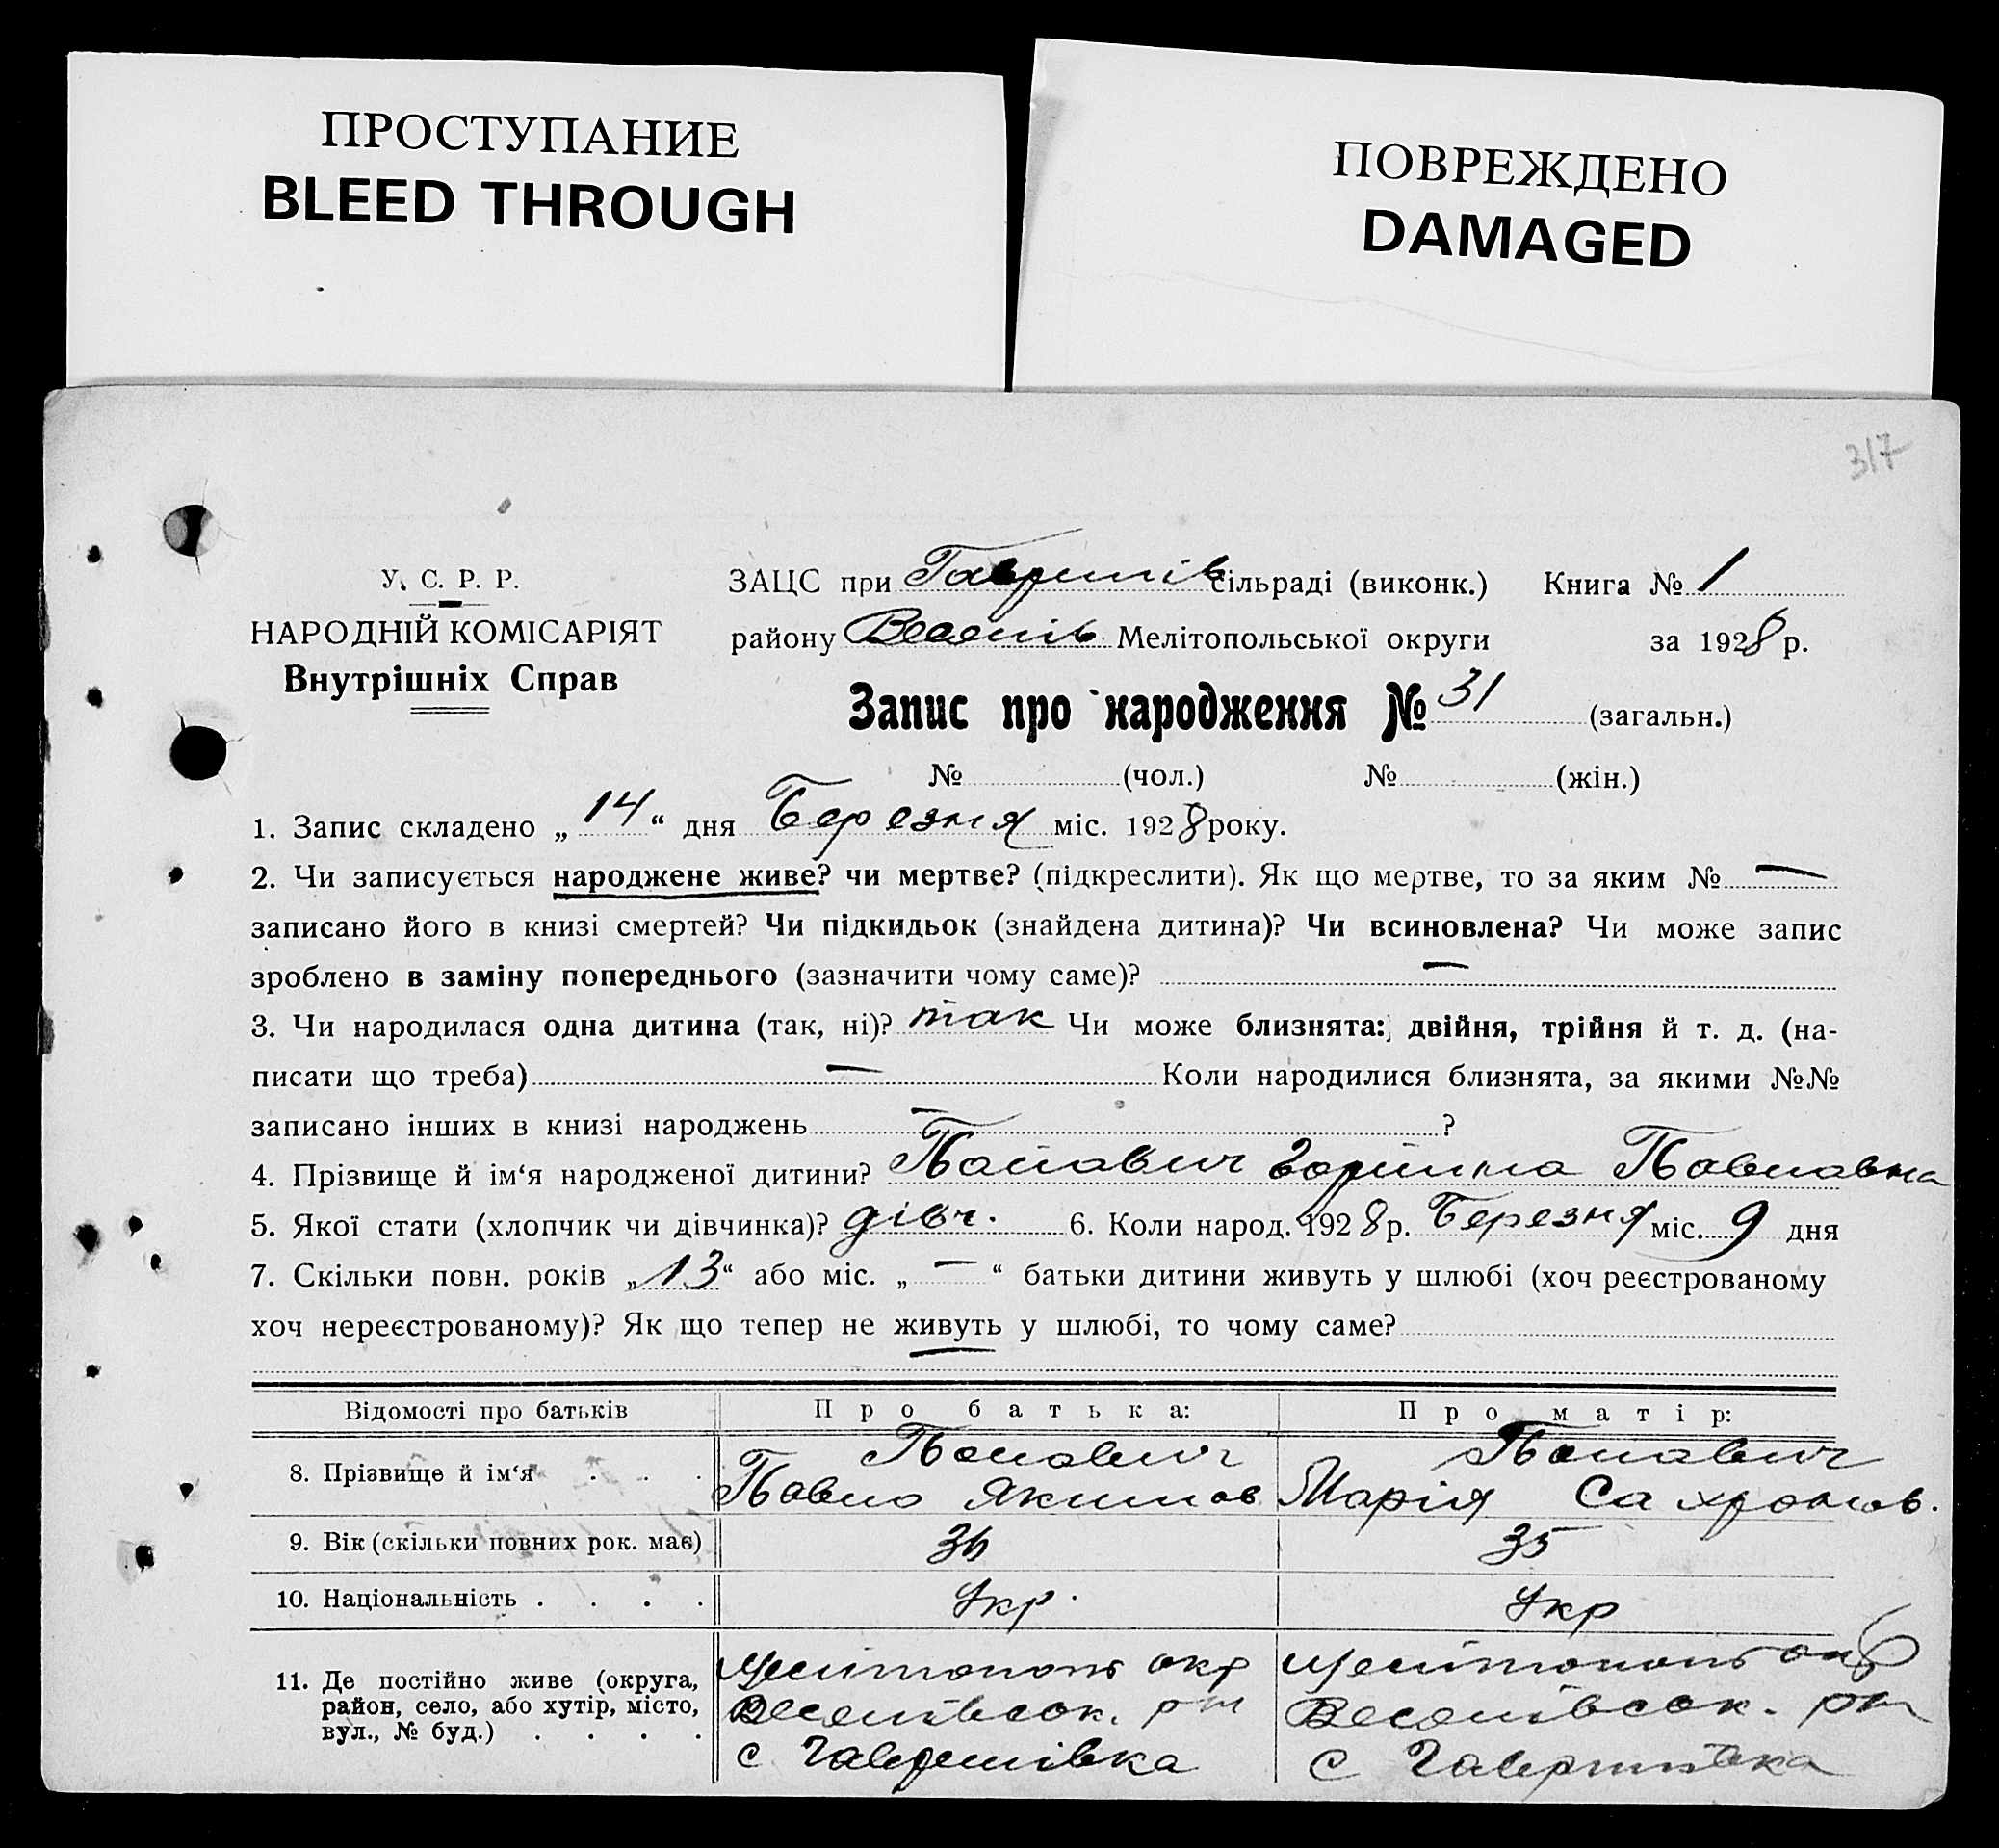 ПРОСТУПАНИЕ
BLEED THROUGH
ПОВРЕЖДЕНО
DAMAGED
317
У. С. Р. Р.
НАРОДНІЙ КОМІСАРІЯТ
Внутрішніх Справ
ЗАЦС при Гаврилів сільраді (виконк.) Книга № 1
району Веселів Мелітопольської округи за 1928 р.
Запис про народження № 31 (загальн.)
№ (чол.) № (жін.)
1. Запис складено „ 14 “ дня Березня міс. 1928 року.
2. Чи записується народжене живе? чи мертве? (підкреслити). Як що мертве, то за яким № —
записано його в книзі смертей? Чи підкидьок (знайдена дитина)? Чи всиновлена? Чи може запис
зроблено в заміну попереднього (зазначити чому саме)? —
3. Чи народилася одна дитина (так, ні)? так Чи може близнята: двійня, трійня й т. д. (на-
писати що треба) — Коли народилися близнята, за якими №№
записано інших в книзі народжень — ?
4. Прізвище й ім‘я народженої дитини? Павлавна
5. Якої стати (хлопчик чи дівчинка)? дівч. 6. Коли народ. 1928 р. Березня міс. 9 дня
7. Скільки повн. років „ 13 “ або міс. „ — “ батьки дитини живуть у шлюбі (хоч реєстрованому
хоч нереєстрованому)? Як що тепер не живуть у шлюбі, то чому саме?
Відомості про батьків Про батька: Про матір:
8. Прізвище й ім‘я
Павло Якимов Марія
9. Вік (скільки повних рок. має) 36 35
10. Національність Укр. Укр
11. Де постійно живе (округа, Мелітополь окр Мелітополь окр
район, село, або хутір, місто, Веселівсок. рн Веселівсок. рн
вул., № буд.) с Гаврилівка с Гаврилівка